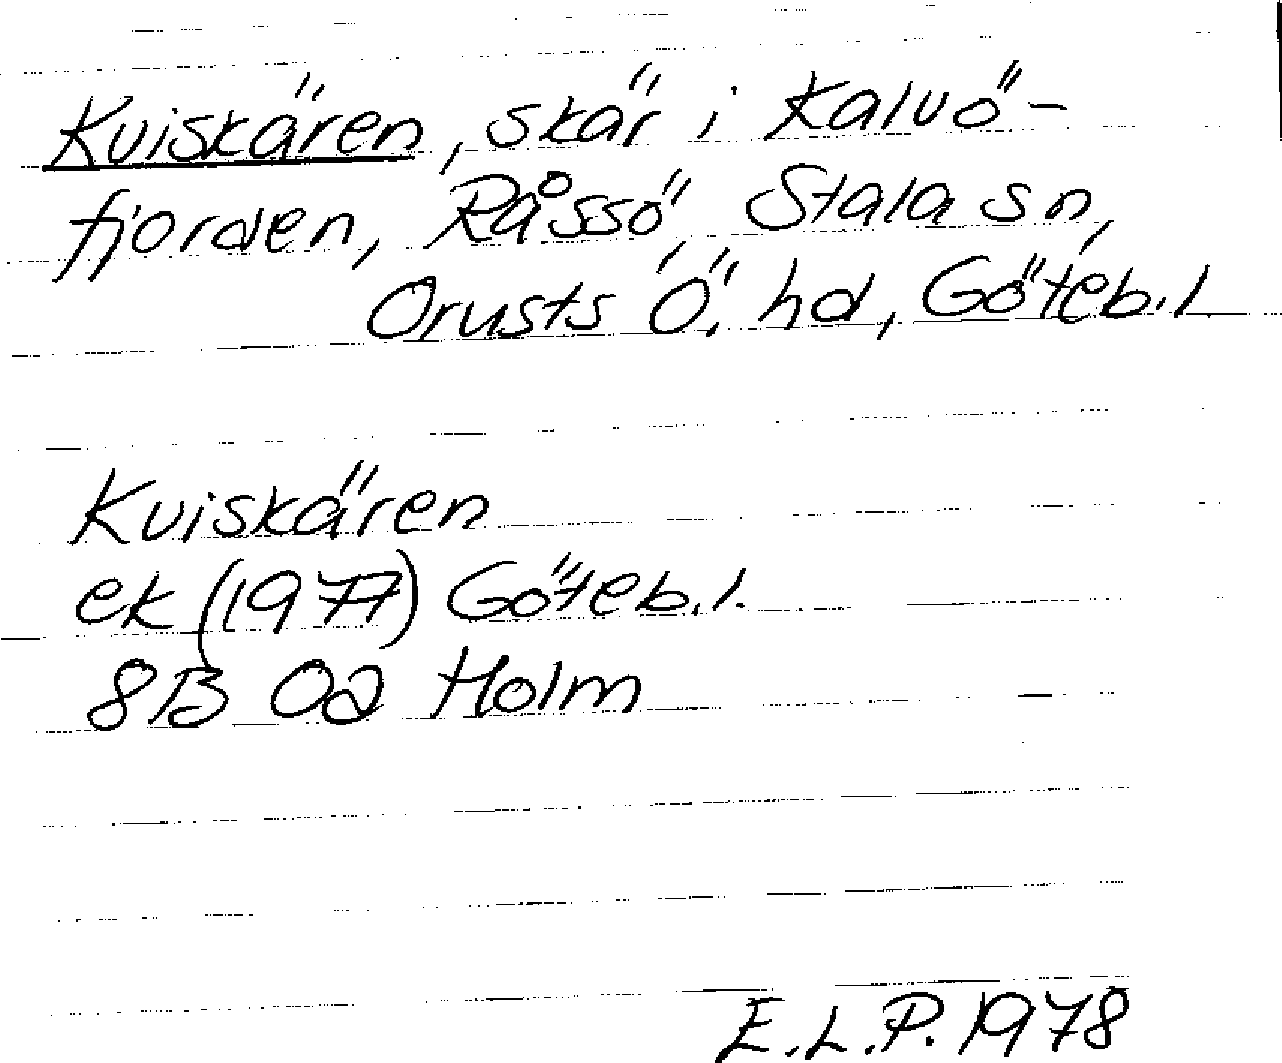 Kuiskären, skär i Kalvö-
fjorden, Råssö, Stala sn,
Orusts Ö. hd, Göteb. l
Kuiskären
ek (1977) Göteb. l.
8B 0a Holm
E.L.P. 1978